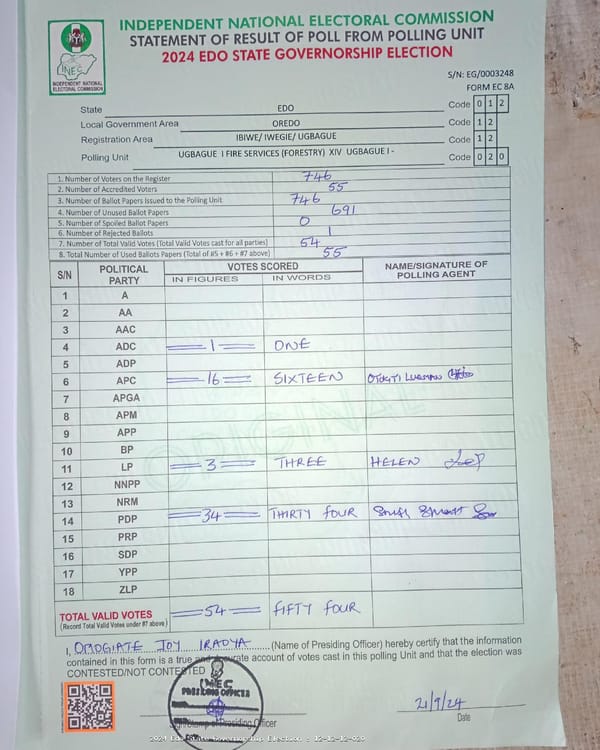 INDEPENDENT NATIONAL ELECTORAL COMMISSION
STATEMENT OF RESULT OF POLL FROM POLLING UNIT
2024 EDO STATE GOVERNORSHIP ELECTION
INEC
INDEPENDENT NATIONAL ELECTORAL COMMISSION
S/N: EG/0003248
FORM EC 8A
State EDO Code 0 1 2
Local Government Area OREDO Code 1 2
Registration Area IBIWE/ IWEGIE/ UGBAGUE Code 1 2
Polling Unit UGBAGUE I FIRE SERVICES (FORESTRY) XIV UGBAGUE I - Code 0 2 0
1. Number of Voters on the Register 746
2. Number of Accredited Voters 55
3. Number of Ballot Papers Issued to the Polling Unit 746
4. Number of Unused Ballot Papers 691
5. Number of Spoiled Ballot Papers 0
6. Number of Rejected Ballots 1
7. Number of Total Valid Votes (Total Valid Votes cast for all parties) 54
8. Total Number of Used Ballots Papers (Total of #5 + #6 + #7 above) 55
S/N POLITICAL PARTY VOTES SCORED NAME/SIGNATURE OF POLLING AGENT
IN FIGURES IN WORDS
1 A
2 AA
3 AAC
4 ADC 1 ONE
5 ADP
6 APC 16 SIXTEEN
7 APGA
8 APM
9 APP
10 BP
11 LP 3 THREE HELEN
12 NNPP
13 NRM
14 PDP 34 THIRTY FOUR
15 PRP
16 SDP
17 YPP
18 ZLP
TOTAL VALID VOTES 54 FIFTY FOUR
(Record Total Valid Votes under #7 above)
I, OMOGIATE JOY IRADYA (Name of Presiding Officer) hereby certify that the information
contained in this form is a true and accurate account of votes cast in this polling Unit and that the election was
CONTESTED/NOT CONTESTED
INEC
PRESIDING OFFICER
of Presiding Officer
21/9/24
Date
2024 Edo State Governorship Election : 12-12-12-020